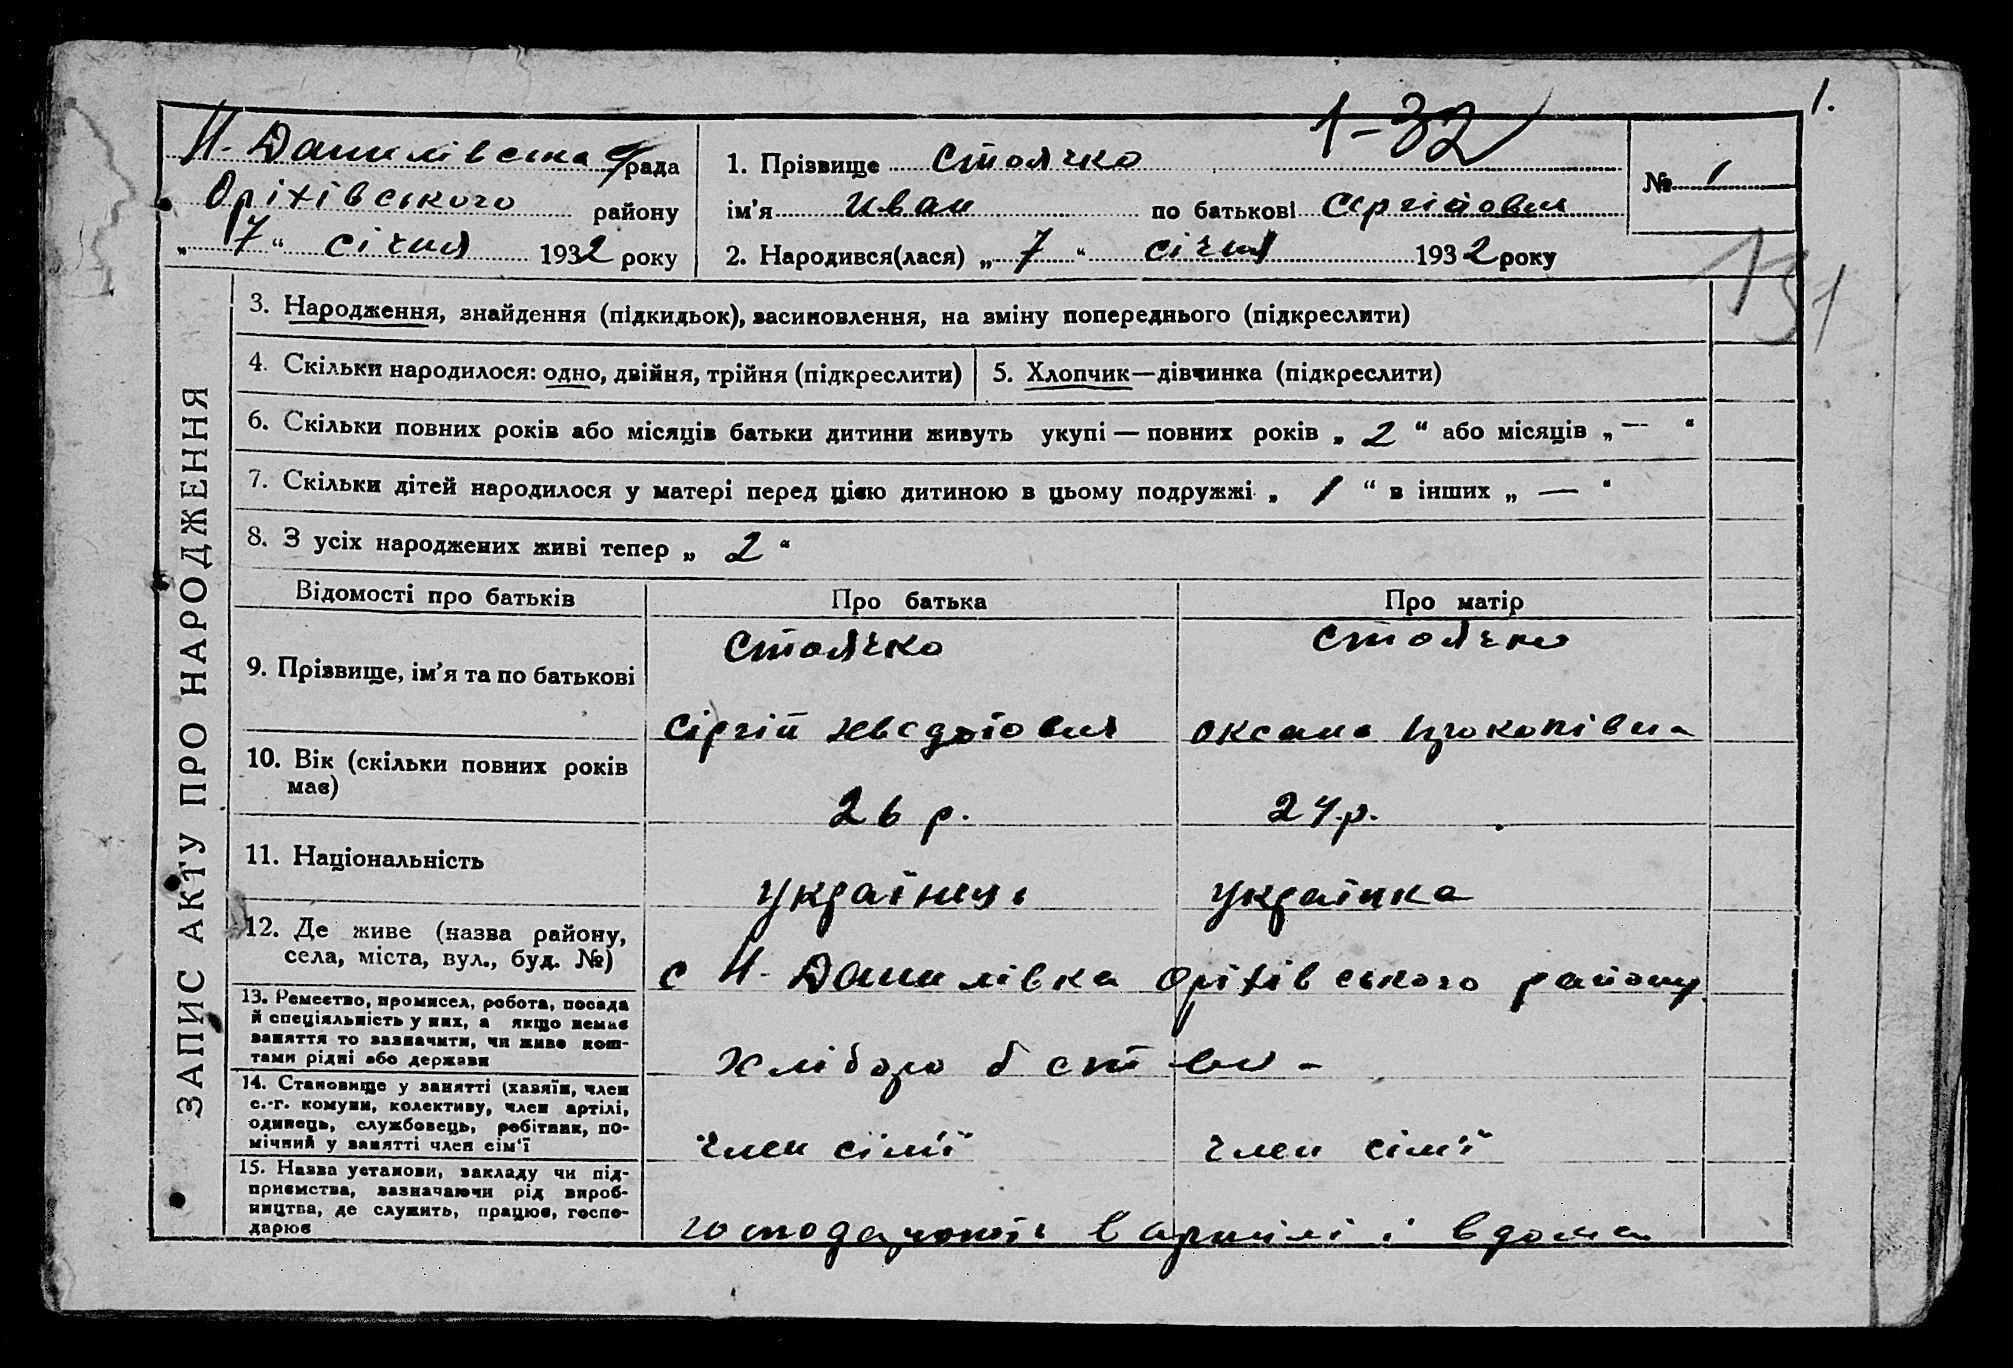 1.
1-32
Н. Данилівська с/рада
Оріхівського району
„ 7 “ січня 1932 року
1. Прізвище Стоячко
ім’я Иван по батькові Сергійович
2. Народився(лася) „ 7 “ січня 1932 року
№ 1
131
ЗАПИС АКТУ ПРО НАРОДЖЕННЯ
3. Народження, знайдення (підкидьок), васиновлення, на зміну попереднього (підкреслити)
4. Скільки народилося: одно, двійня, трійня (підкреслити)
5. Хлопчик—дівчинка (підкреслити)
6. Скільки повних років або місяців батьки дитини живуть укупі — повних років „ 2 “ або місяців „ — “
7. Скільки дітей народилося у матері перед цією дитиною в цьому подружжі „ 1 “ в інших „ — “
8. З усіх народжених живі тепер „ 2 “
Відомості про батьків
Про батька
Про матір
9. Прізвище, ім’я та по батькові
Стоячко
Сіргій
Стоячко
Оксана Прокопівна
10. Вік (скільки повних років
має)
26 р.
24 р.
11. Національність
українець
українка
12. Де живе (назва району,
села, міста, вул., буд. №)
с Н. Данилівка Оріхівського району
13. Ремество, промисел, робота, посада
й спеціяльність у них, а якщо немає
заняття то зазначити, чи живе кош-
тами рідні або держави
Хліборобство
14. Становище у занятті (хазяїн, член
с.-г. комуни, колективу, член артілі,
одинець, службовець, робітник, по-
мічний у занятті член сім’ї
член сім'ї
член сім'ї
15. Назва установи, закладу чи під-
приємства, зазначаючи рід вироб-
ництва, де служить, працює, госпо-
дарює
господарюють в артілі і вдома